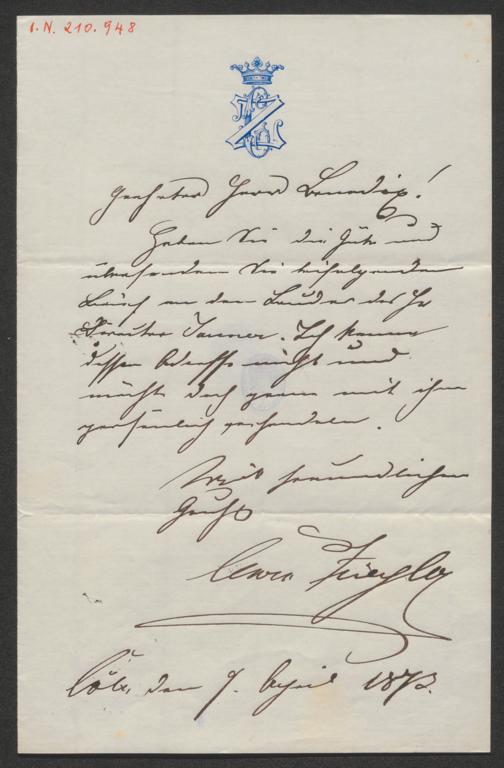 I.N. 210.948
Geehrter Herr Benedix!
Haben Sie die Güte und
übersenden Sie beifolgenden
an den Bruder des H
Director Jauner. Ich kenne
dessen Adresse nicht und
möchte doch gern mit ihm
persönlich verhandeln.
Mit freundlichem
Gruß
Clara Ziegler
Cöln, den 9. April 1873.